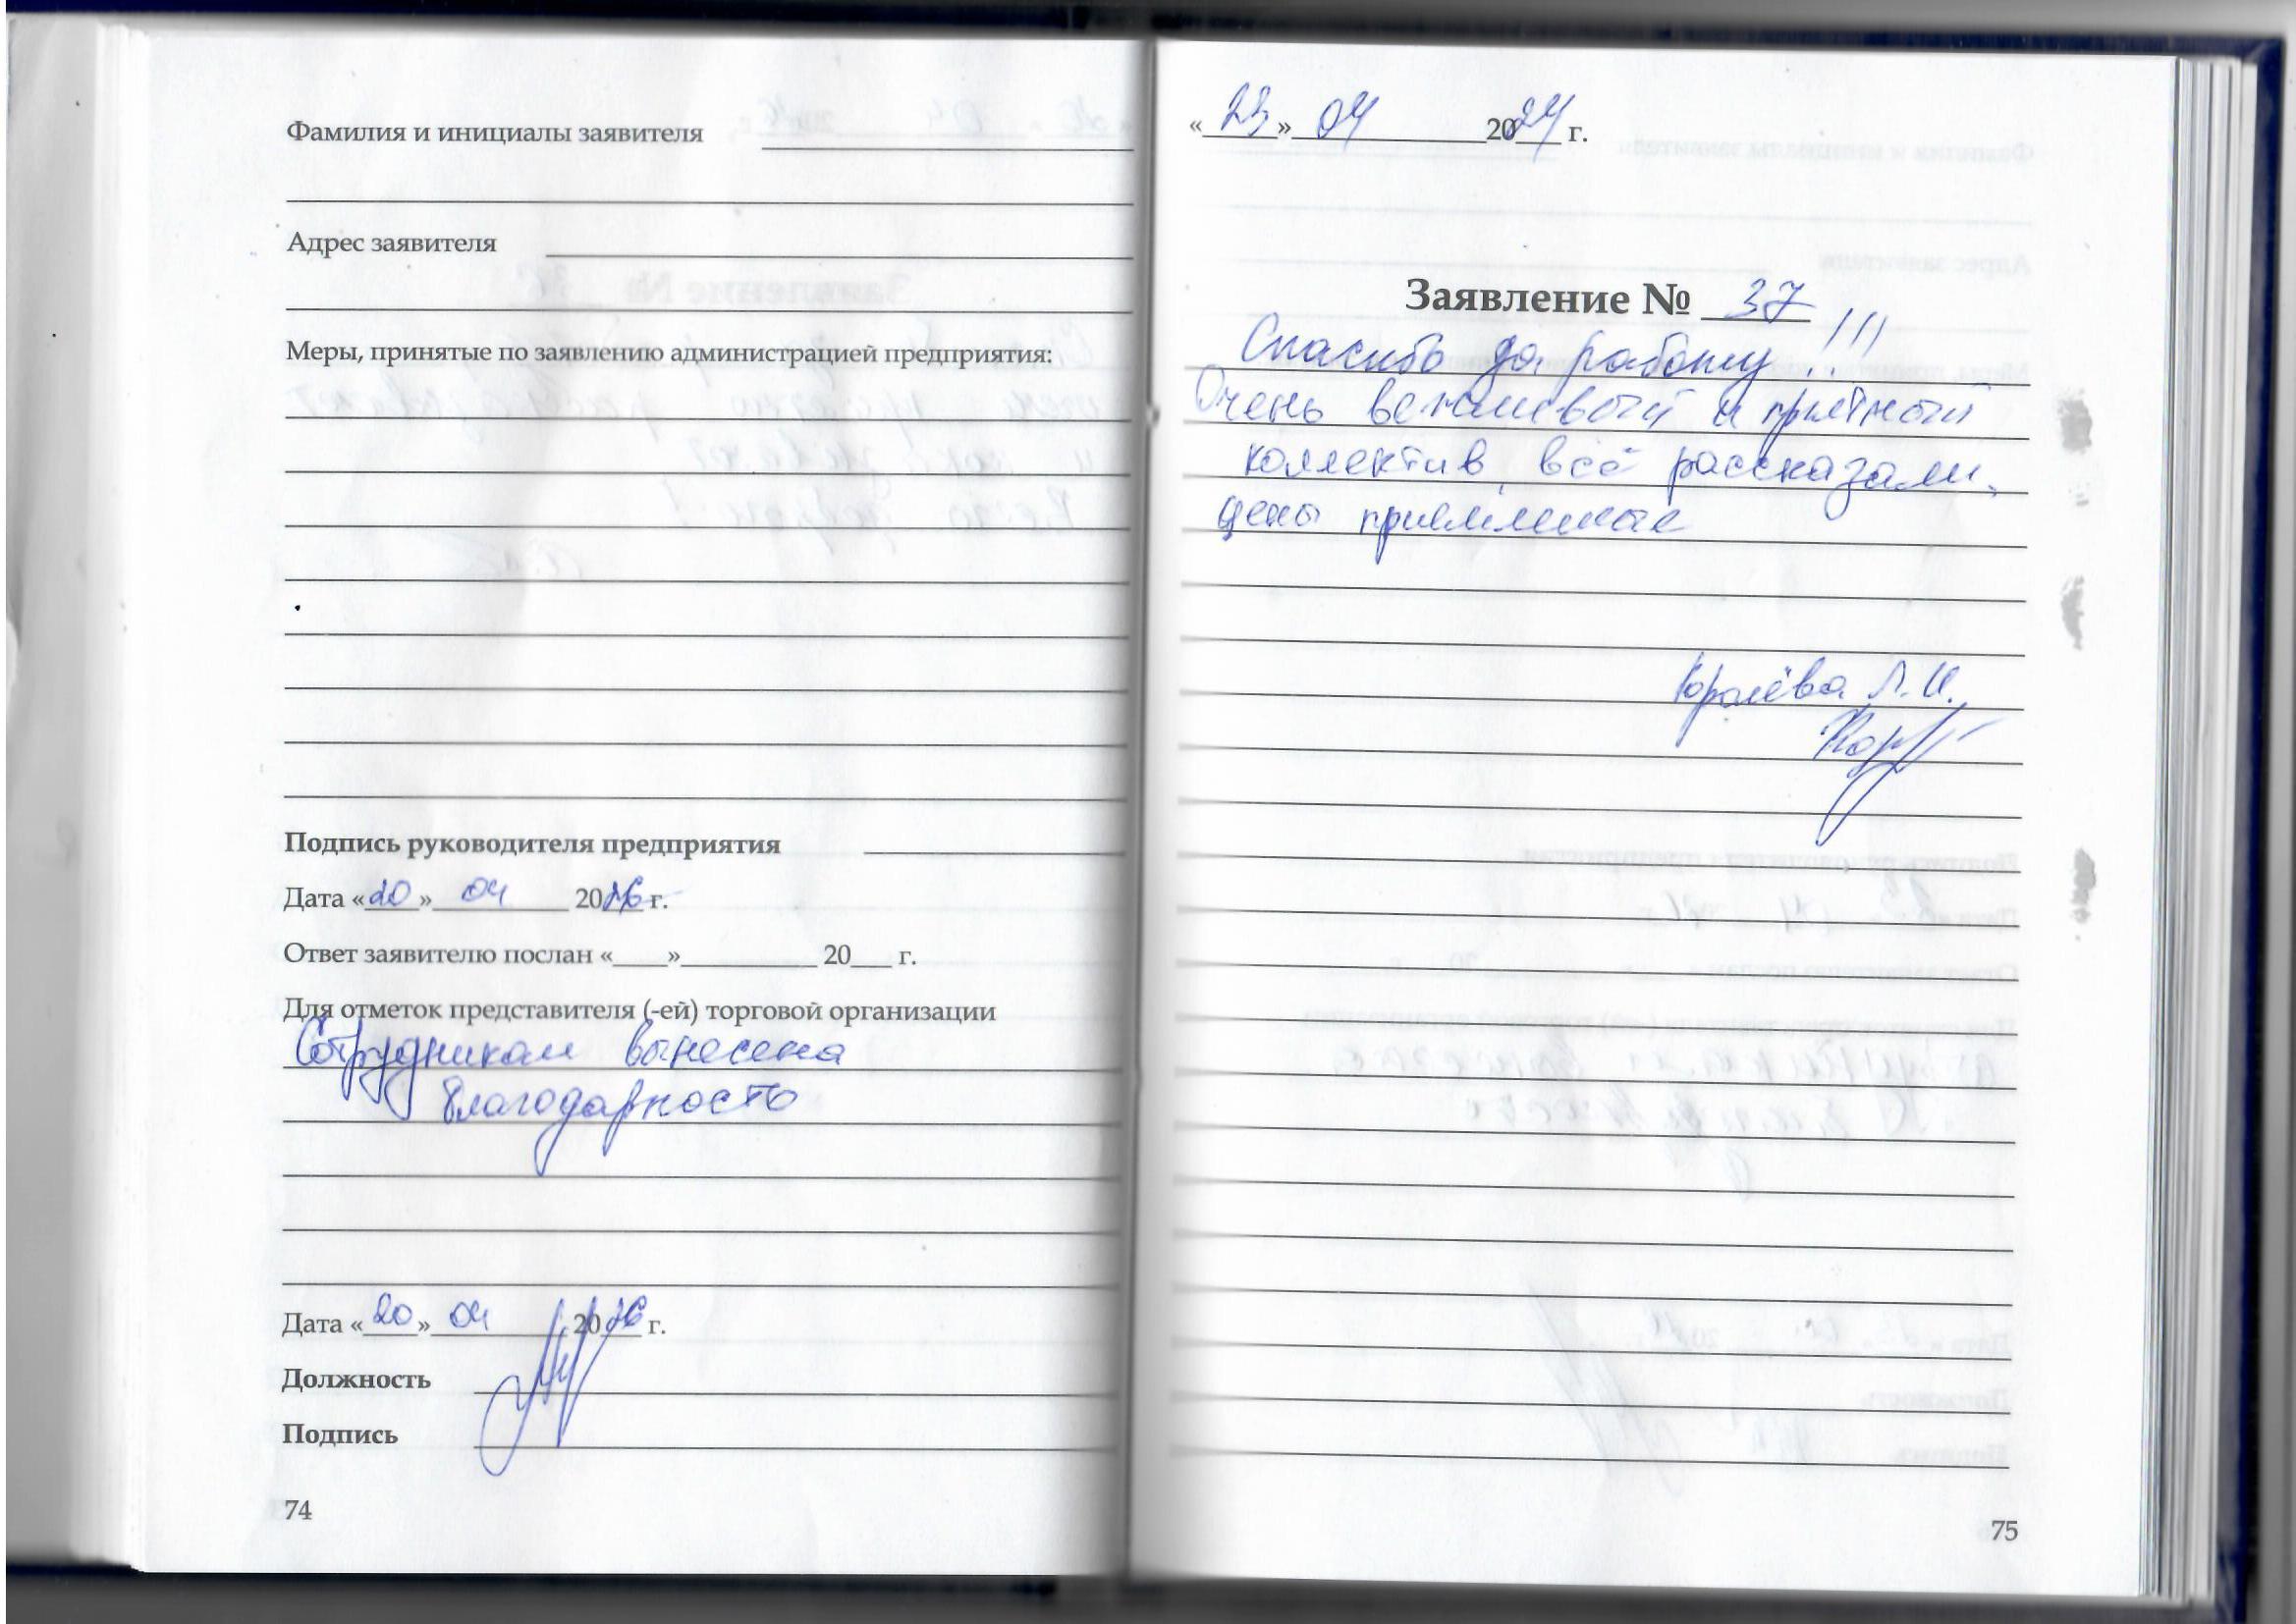 Фамилия и инициалы заявителя
Адрес заявителя
Меры, принятые по заявлению администрацией предприятия:
Подпись руководителя предприятия
Дата «20» 04 2026 г.
Ответ заявителю послан «____»__________ 20___ г.
Для отметок представителя (-ей) торговой организации
Сотрудникам вынесена
благодарность
Дата «20» 04 2026 г.
Должность
Подпись
74
«23» 04 2024 г.
Заявление № 37
Спасибо за работу!!!
Очень вежливый и приятный
коллектив, всё рассказали,
цены приемлемые
Королёва Л.И.
75